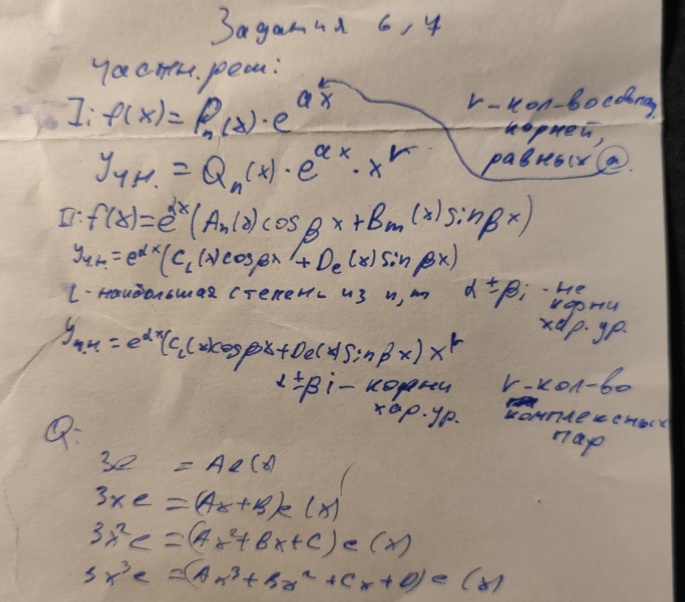 Задания 6, 7
Частн. реш:
I: f(x) = Pₙ(x)·e^(ax)
r – кол-во совпад.
корней,
равных a.
Yч.н. = Qₙ(x)·e^(ax)·x^r
II: f(x) = e^(αx)(Aₙ(x)cosβx + Bₘ(x)sinβx)
Yч.н. = e^(αx)(C_l(x)cosβx + D_l(x)sinβx)
l - наибольшая степень из n, m
α ± βi - не
корни
хар. ур.
Yч.н. = e^(αx)(C_l(x)cosβx + D_l(x)sinβx) x^r
α ± βi – корни
хар. ур.
r - кол-во
комплексных
пар
Q:
3e = Ae(x)
3xe = (Ax+B)e(x)
3x²e = (Ax²+Bx+C)e(x)
3x³e = (Ax³+Bx²+Cx+D)e(x)